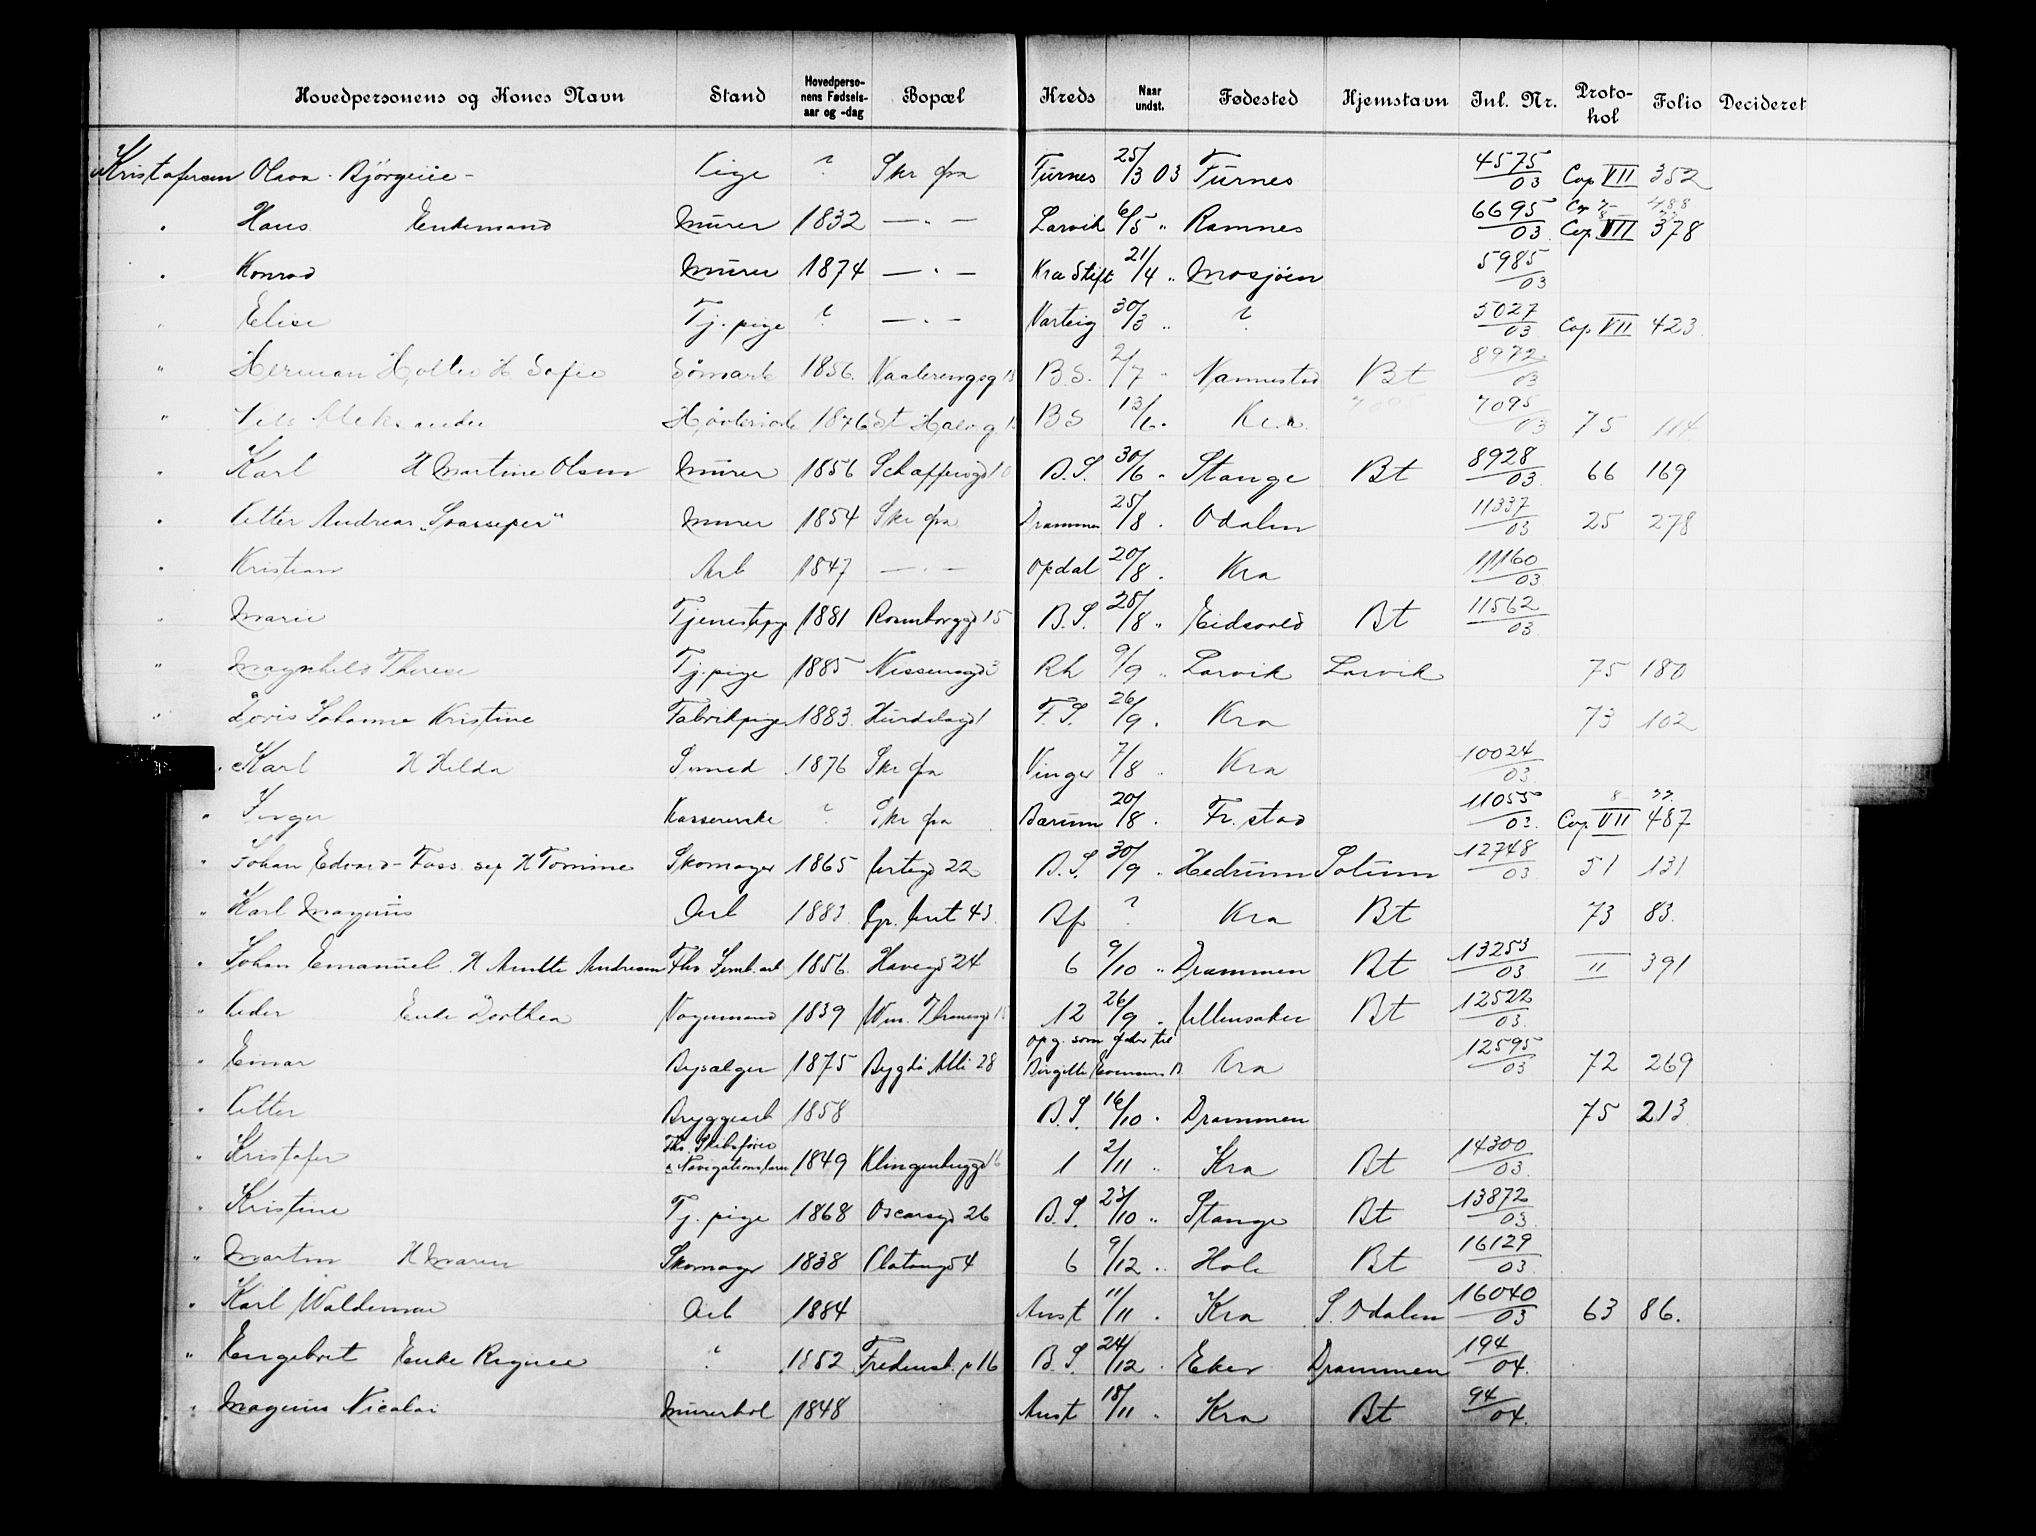 Hovedpersonens og Kones Navn Stand Hovedpersonens Fødselsaar og -dag Bopæl Kreds Naar undst. Fødested Hjemstavn Inl. Nr. Protokol Folio Decideret
Kristofersen Olava Pige ? Skr fra Furnes 25/3 03 Furnes 4575/03 Cop VII 352
" Hans Enkemand Murer 1832 — " — Larvik 6/5 " Ramnes 6695/03 Cop VII 378
" Konrad Murer 1874 — " — Kra Stift 21/4 " Mosjøen 5985/03
" Elise Tj. pige ? — " — Varteig 30/3 " ? 5027/03 Cop VII 423
" Herman H Sofie 1856 Vaalerengsg B.S. 2/7 " Nannestad Bt 8972/03
" 1876 B S 13/6 " Kra 7095/03 75 114
" Karl H Martine Olsen Murer 1856 B.S. 30/6 " Stange Bt 8928/03 66 169
" Petter Andreas Murer 1854 Skr fra Drammen 25/8 " Odalen 11337/03 25 278
" Kristian Arb 1847 — " — Opdal 20/8 " Kra 11160/03
" Marie 1881 Rosenborggd 15 B.S. 28/8 " Eidsvold Bt 11562/03
" Magnhild Therese Tj. pige 1885 Nissensgd 3 Rh 9/9 " Larvik Larvik 75 180
" Johanne Kristine Fabrikpige 1883 Hurdalsgd 1 F.S. 26/9 " Kra 73 102
" Karl H Hilda Smed 1876 Skr fra Vinger 7/8 " Kra 10024/03
" Inger Kassererske ? Skr fra Bærum 20/8 " Fr. stad 11055/03 Cop VII 487
" Johan Edvard H Tomine Skomager 1865 Urtegd 22 B.S. 30/9 " Hedrum Solum 12748/03 51 131
" Karl Magnus Arb 1883 43 Bf ? Kra Bt 73 83
" Johan Emanuel H Anette Andresen 1856 Havegd 24 6 9/10 " Drammen Bt 13253/03 II 391
" Peder Enke Dorthea Vognmand 1839 12 26/9 " Ullensaker Bt 12522/03
" Einar Bysælger 1875 Bygdø Allé 28 opg. som fader til Birgitte Kra 12595/03 72 269
" Petter Bryggearb 1858 B.S. 16/10 " Drammen 75 213
" Kristofer Fhv. Skibsfører 1849 Klingenberggd 1 2/11 " Kra Bt 14300/03
" Kristine Tj. pige 1868 Oscarsgd 26 B.S. 23/10 " Stange Bt 13872/03
" Martin H Maren Skomager 1838 Platousgd 4 6 9/12 " Hole Bt 16129/03
" Karl Waldemar Arb 1884 Anst 11/11 " Kra S. Odalen 16040/03 63 86
" Engebret Enke ? 1852 16 B.S. 24/12 " Eker Drammen 194/04
" Magnus Nicolai 1848 Anst 18/11 " Kra Bt 94/04